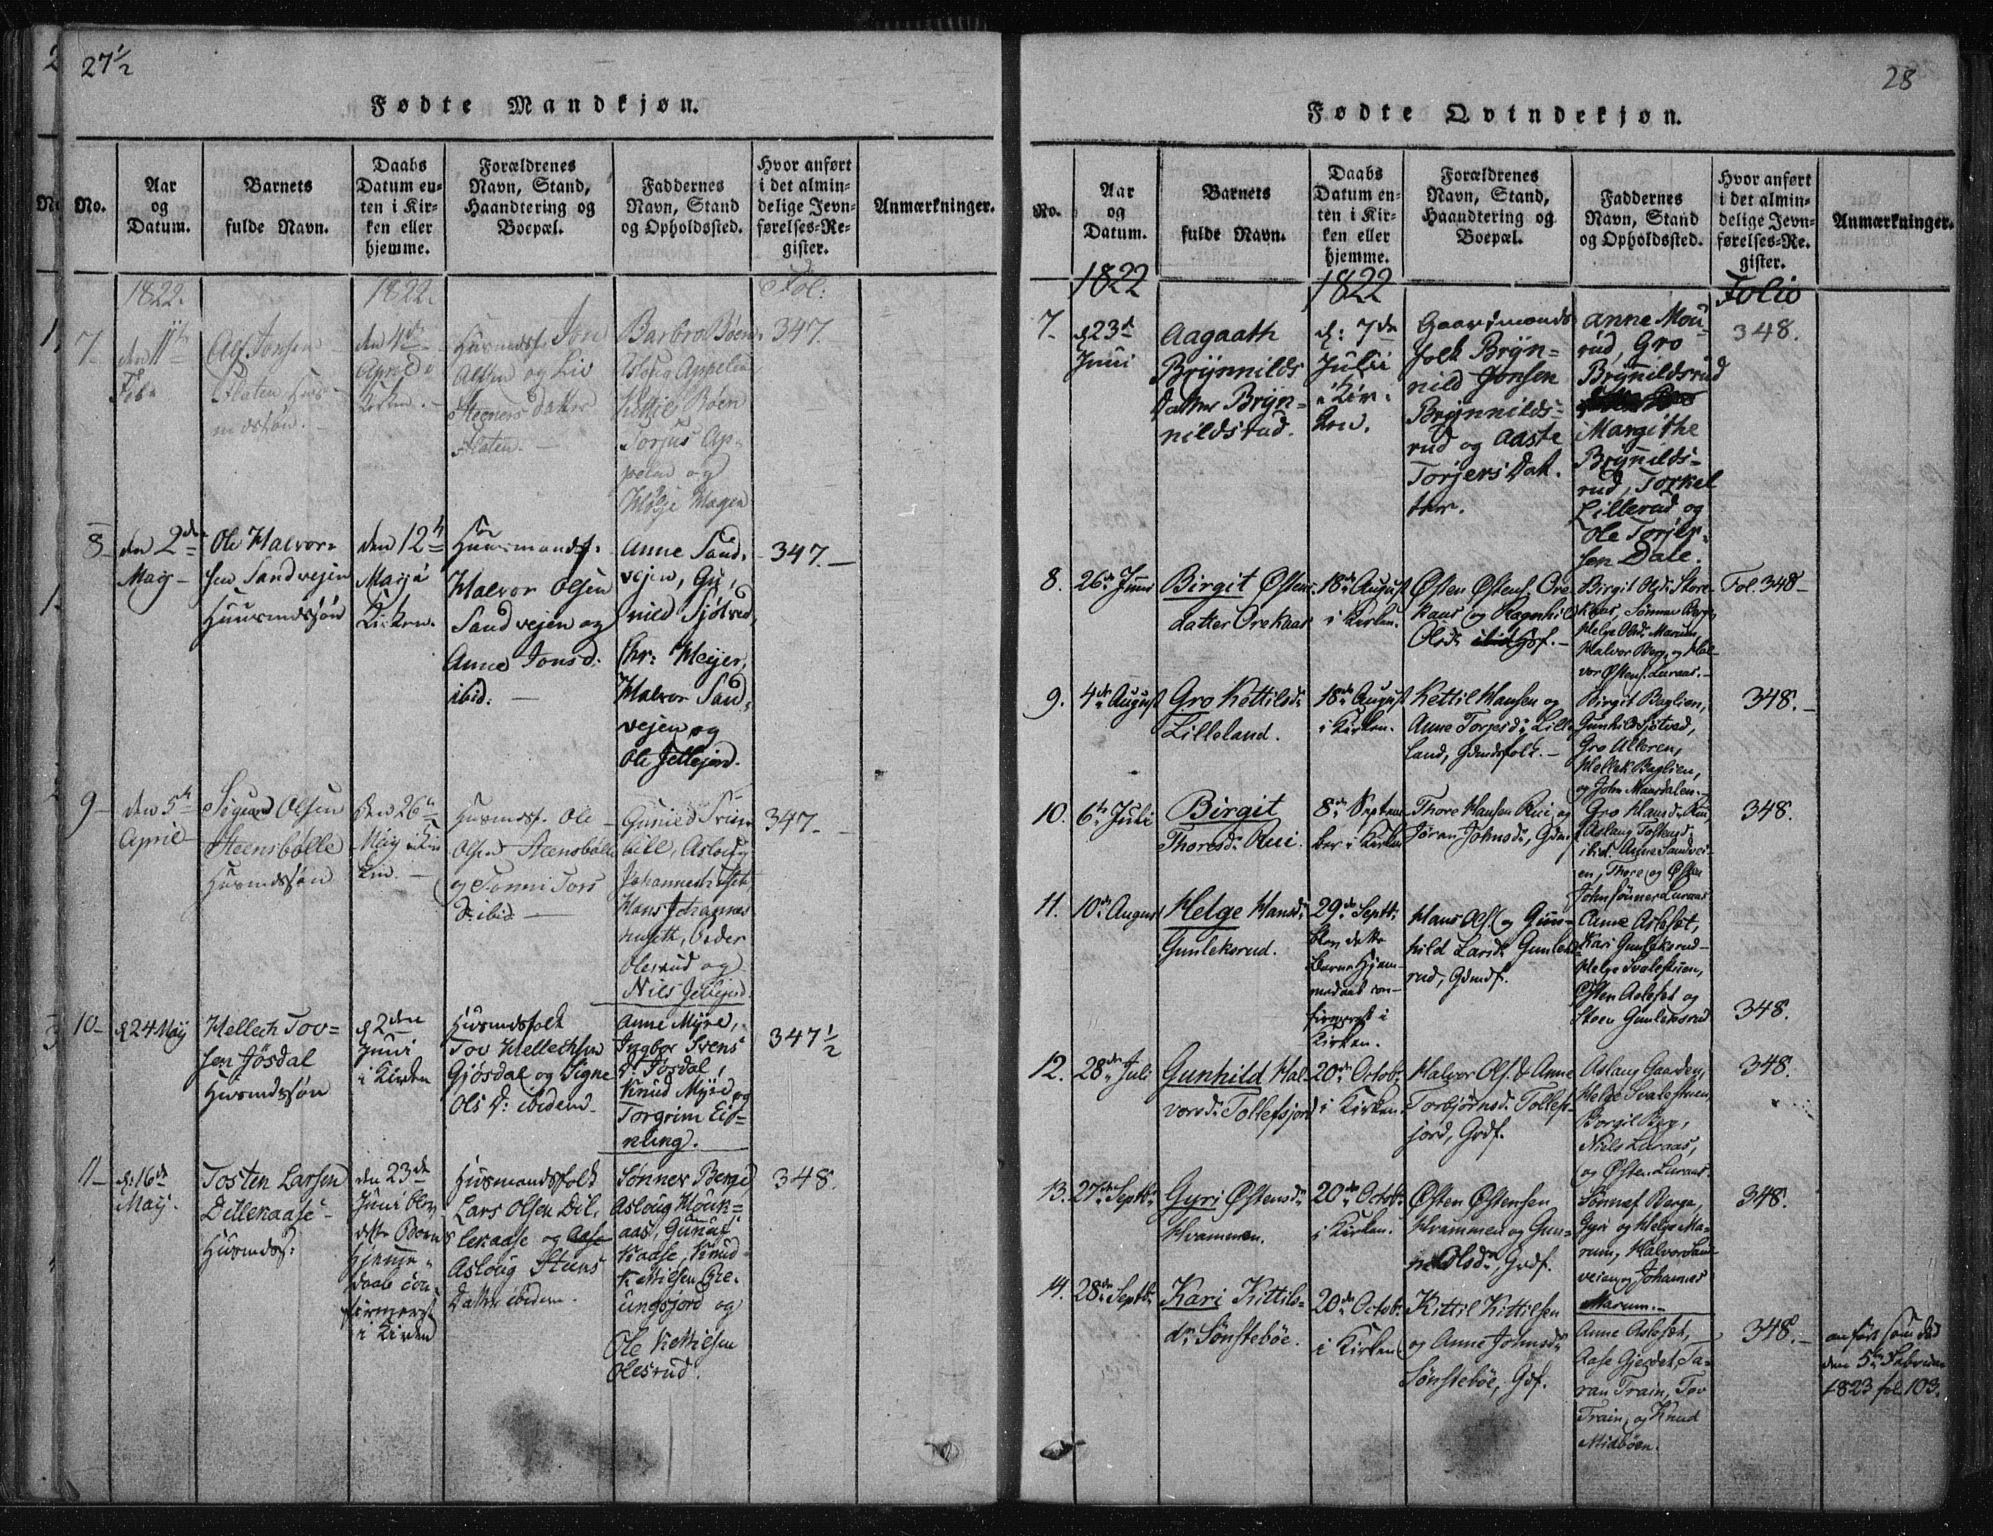 27 1/2
Fødte Mandkjøn.
No.
Aar
og
Datum.
Barnets
fulde Navn.
Daabs
Datum en-
ten i Kir-
ken eller
hjemme.
Forældrenes
Navn, Stand,
Haandtering og
Boepæl.
Faddernes
Navn, Stand
og Opholdssted.
Hvor anført
i det almin-
delige Jevn-
førelses-Re-
gister.
Anmærkninger.
1822.
1822.
Fol:
7
den 11te
Feb
Jonsen
Flaten
den 4de
April
Kirken.
Jon
og Liv
Steeners datter
Flaten.
Barbro Bøen
Asloug
Kittil Bøen
Torjus
og
Hagen
347.
8
den 2den
May
Ole Halvor-
sen Sandvejen
Huusmdssøn
den 12te
May i
Kirken.
Huusmandsf.
Halvor Olsen
Sandvejen og
Anne Jonsd:
ibid:
Anne Sand-
vejen, Gu-
nild Sjøtved
Chr: Meÿer,
Halvor Sand-
vejen og
Ole Jellejord.
347.
9
den 5te
April
Sigurd Olsen
Steensbølle
Husmdssøn
Den 26te
May i Kir
ken.
Husmdsf. Ole
Olsen Steensbølle
og Tonni Tors
D: ibid
Gunild
Asloug
Hans Johannes
Peder
Olesrud og
Nils Jellejord.
347.
10
d 24 Maÿ
Hellech Tov-
sen Jøsdal
Husmdssøn
d 2den
Juni
i Kirken
Husmdsfolk
Tov Hellechsen
Gjøsdal og Signe
Ols D: ibidem
Anne Mÿre,
Ingbor Svens
D: Jøsdal,
Knud Mÿre og
Torgrim Eie-
nling.
347 1/2
11
d: 16de
Maÿ.
Tosten Larsen
Dillekaase
Husmdss:
den 23de
Juni blev
dette Barns
Hjemme-
daab con-
firmeret
i Kirken
Husmandsfolk
Lars Olsen Dil-
lekaase og Aase
Asloug Steens
Datter ibidem.
Sønnev Berge
Asloug
Kaase, Knud
Kittilsen
ungsjord og
Ole Kittilsen
Olesrud.
348.
28
Fødte Qvindekjøn.
No.
Aar
og
Datum.
Barnets
fulde Navn.
Daabs
Datum en-
ten i Kir-
ken eller
hjemme.
Forældrenes
Navn, Stand,
Haandtering og
Boepæl.
Faddernes
Navn, Stand
og Opholdssted.
Hvor anført
i det almin-
delige Jevn-
førelses-Re-
gister.
Anmærkninger.
1822
1822
Folio
7.
d 23d
Juni
Aagaath
Brÿnnilds
Datter Brÿn-
nildsrud.
d: 7de
Julii
i Kir-
ken.
Gaardmands
folk Brÿn-
nild Jonsen
Brÿnnilds-
rud og Aaste
Torjers Dat-
ter.
Anne Mou-
rud, Gro
Brÿnildsrud
Margithe
Brÿnilds-
rud, Torkel
Lillerud og
Ole Torjer-
sen Dale.
348.
8.
26de Juni
Birgit Østens
datter Orekaas
18de August
i Kirken.
Østen Østens. Ore
kaas og Ragnhild
Olsd: ibid Gdf.
Birgit Olsd: Store-
kaas, Sønnev Berge
Helge Olsd: Marum,
Halvor Berg, og Hal-
vor Østens. Luraas.
Fol. 348
9.
4de August
Gro Kettilsd:
Lilleland.
18de August
i Kirken.
Kettil Hansen og
Anne Torjersd: Lille
land, Gdmdsfolk.
Birgit Baglien,
Gunhild Sjøtved,
Gro Ulleren,
Hellek Baglien,
og John Maardalen.
348.
10.
6te Juli
Birgit
Thoresd: Rui.
8de Septem
ber i Kirken
Thore Hansen Rui og
Jøran Johnsd:, Gdmf
Gro Hansd: Rui,
Aslaug Tostensd:
ibid. Anne Sandvei-
en, Thore og Østen
Johnsønner Luraas
348.
11.
10de August
Helge Hansd:
Gunleksrud.
29de Septb:
blev dette
Barns Hjem-
medaab con-
firmeret i
Kirken.
Hans Ols. og Gun-
hild Larsd: Gunleks
rud, Gdmdf.
Anne Aslefet,
Kari Gunleksrud
Helge Svalestuen,
Østen Aslefet og
Steen Gunleksrud
348.
12.
28de Juli
Gunhild Hal-
vorsd: Tollefsjord
20de Octob:
i Kirken.
Halvor Ols. & Anne
Torbjørnsd: Tollefs-
jord, Grdf.
Aslaug Gaarden,
Helge Svalestuen
Borgil Berg,
Niels Luraas,
og Østen Luraas.
348.
13.
27de Septb:
Gyri Østensd:
Hvammen.
20de Octob:
i Kirken.
Østen Østensen
Hvammen og Gun-
hild Olsd:, Grdf.
Sønnef Berge,
Gyri og Helge Ma-
rum, Halvor Sand
veien og Johannes
Marum.
348.
14.
28de Septb:
Kari Kittils-
dr Sønstebøe.
20de Octob:
i Kirken
Kittil Kittilsen
og Anne Johnsd:
Sønstebøe, Gdf.
Anne Aslefet,
Aase Gjerdet, Ta-
ran Train, Tov
Train, og Knud
Midbøen.
348.
anført som død
den 5te Februar
1823 fol. 103.